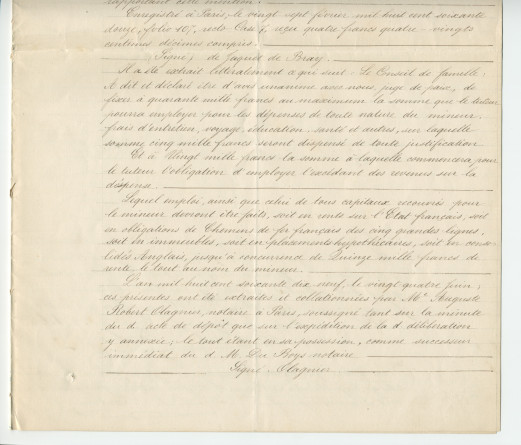 rapportant cette mention.
Enregistré à Paris, le vingt sept février mil huit cent soixante
douze, folio 10, recto Case 4, reçu quatre francs quatre-vingts
centimes décimes compris.
Signé, de Jaquot de Bray.
Il a été extrait littéralement ce qui suit: Le Conseil de famille:
A dit et déclaré être d'avis unanime avec nous, juge de paix, de
fixer à quarante mille francs au maximum la somme que le tuteur
pourra employer pour les dépenses de toute nature du mineur;
frais d'entretien, voyage, éducation, santé et autres, sur laquelle
somme cinq mille francs seront dispensé de toute justification.
Et à Vingt mille francs la somme à laquelle commencera pour
le tuteur l'obligation d'employer l'excédant des revenus sur la
dépense.
Lequel emploi, ainsi que celui de tous capitaux recouvrés pour
le mineur devront être faits, soit en rente sur l'Etat français, soit
en obligations de Chemins de fer français des cinq grandes lignes,
soit en immeubles, soit en placements hypothécaires, soit en conso-
lidés Anglais, jusqu'à concurrence de Quinze mille francs de
rente, le tout au nom du mineur.
L'an mil huit cent soixante dix neuf, le vingt quatre juin;
ces présentes ont été extraites et collationnées par Me Auguste
Robert Olagnier, notaire à Paris, soussigné tant sur la minute
du d. acte de dépôt que sur l'expédition de la d. délibération
y annexée, le tout étant en sa possession, comme successeur
immédiat du d. M. Du Roys notaire
Signé: Olagnier